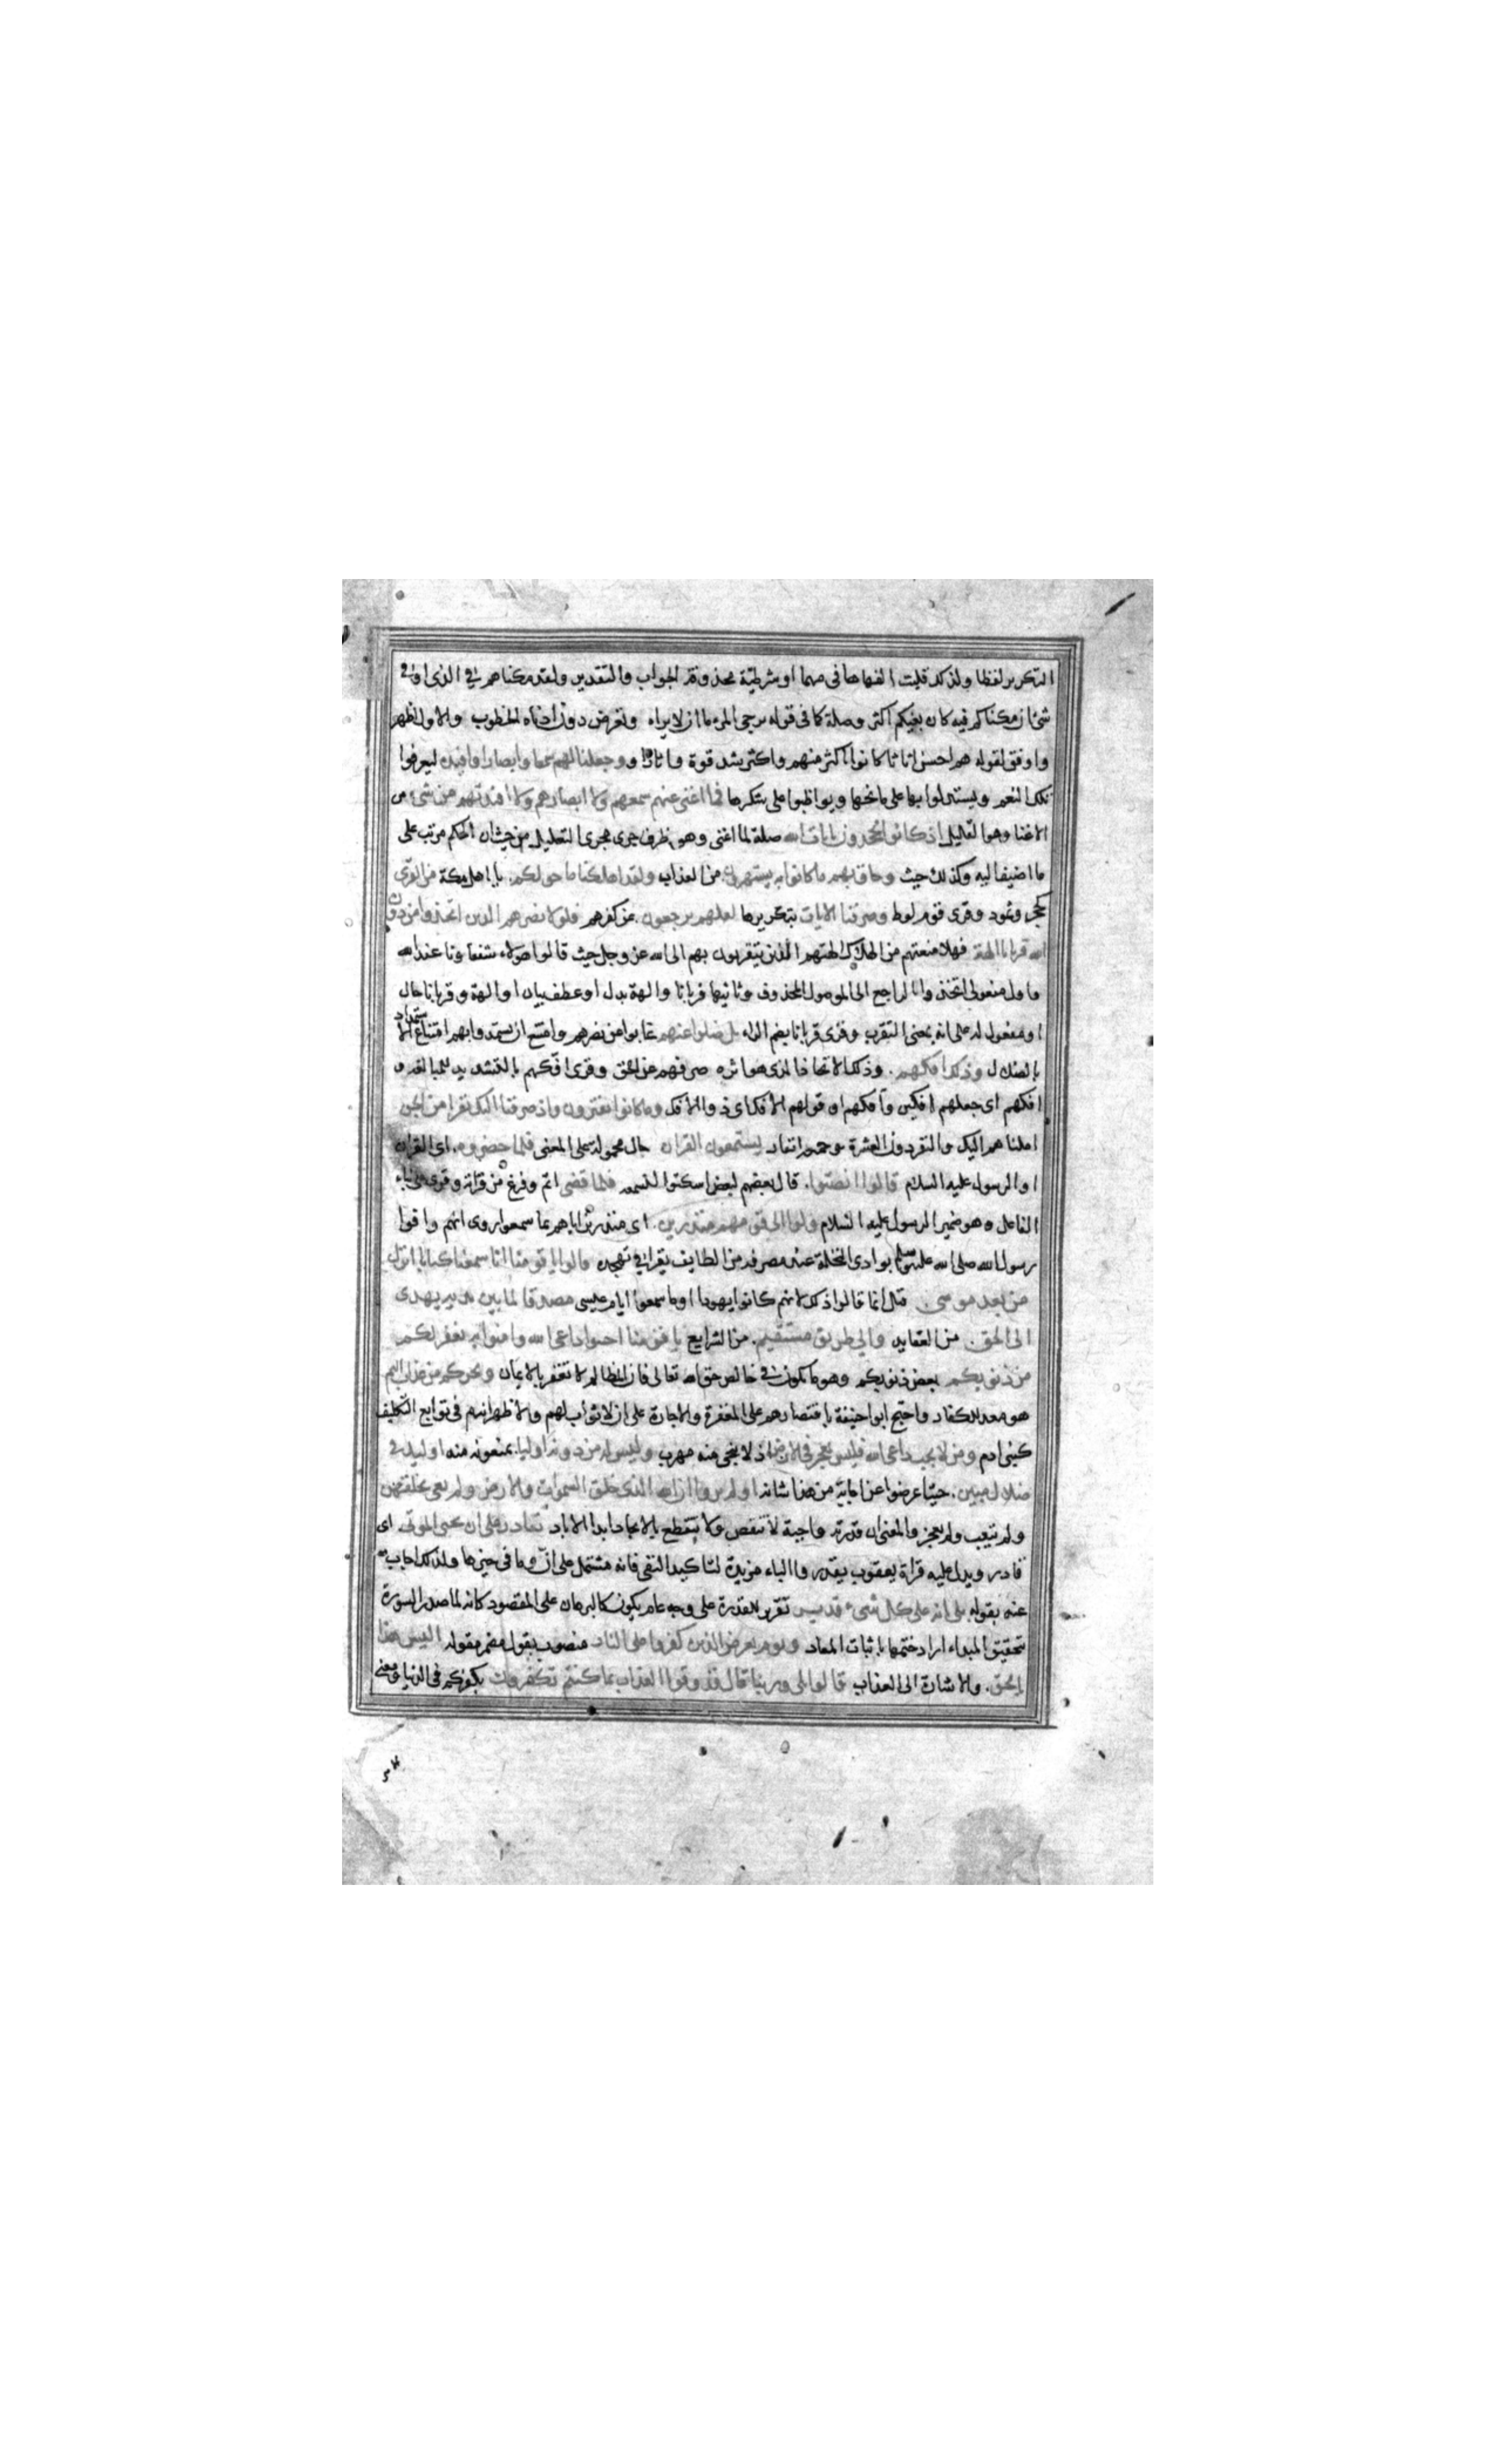 التكرير لفظا ولذلك قلبت الفها ها في مهما او شرطية محذوفة الجواب والتقدير ولقد مكناهم في الذي او في
شئ ان مكناكم فيه كان بغيكم اكثر وصلة كما في قوله يرجى المرء ما ان لا يراه وتعرض دون ادناه الخطوب والاول اظهر
واوفق لقوله هم احسن اثاثا كانوا اكثر منهم واكثر شد قوة واثارا وجعلنا لهم سمعا وابصارا وافيدة ليعرفوا
تلك النعم ويستدلوا بها على مانحها ويواظبوا على شكرها فما اغنى عنهم سمعهم ولا ابصارهم ولا افئدتهم من شئ من
الاغنا وهو القليل اذ كانوا يجحدون بايات الله صلة لما اغنى وهو ظرف جرى مجرى التعليل من حيث ان الحكم مرتب على
ما اضيف اليه وكذلك حيث وحاق بهم ما كانوا به يستهزؤن من العذاب ولقد اهلكنا ما حولكم يا اهل مكة من القرى
كحجر وثمود وقرى قوم لوط وصرفنا الايات بتكريرها لعلهم يرجعون عن كفرهم فلولا نصرهم الذين اتخذوا من دون
الله قربانا الهة فهلا منعتهم من الهلاك الهتهم الذين يتقربون بهم الى الله عز وجل حيث قالوا هولاء شفعاونا عند الله
واول مفعولى اتخذوا الراجع الى الموصول المحذوف وثانيهما قربانا والهة بدل او عطف بيان او الهة وقربانا حال
او مفعول له على انه بمعنى التقرب وقرى قربانا بضم الراء بل ضلوا عنهم غابوا عن نصرهم وامتنع ان يستمدوا بهم امتناع الاستمداد
بالضلال وذلك افكهم وذلك الاتخاذ الذى هو اثره صرفهم عن الحق وقرى افكهم بالتشديد للمبالغة و
افكهم اى جعلهم افكين وآفكهم اى قولهم الافك اى ذو الافك وما كانوا يفترون واذ صرفنا اليك نفرا من الجن
املناهم اليك والنفر دون العشرة وجمعه انفار يستمعون القران حال محمولة على المعنى فلما حضروه اى القران
او الرسول عليه السلام قالوا انصتوا قال بعضهم لبعض اسكتوا لنسمعه فلما قضى اتم وفرغ من قراته وقرى على بناء
الفاعل وهو ضمير الرسول عليه السلام ولوا الى قومهم منذرين اى منذرين اياهم بما سمعوا روى انهم وافوا
رسول الله صلى الله عليه وسلم بوادى النخلة عند منصرفه من الطايف يقرا في تهجده قالوا يا قومنا انا سمعنا كتابا انزل
من بعد موسى قيل انما قالوا ذلك لانهم كانوا يهودا او ما سمعوا ايام عيسى مصدقا لما بين يديه يهدى
الى الحق من العقايد والى طريق مستقيم من الشرايع يا قومنا اجيبوا داعى الله وامنوا به يغفر لكم
من ذنوبكم بعض ذنوبكم وهو ما يكون في خالص حق الله تعالى فان المظالم لا تغفر بالايمان ويجركم من عذاب اليم
هو معد للكفار واحتج ابو حنيفة باقتصارهم على المغفرة والاجارة على ان لا ثواب لهم والاظهر انهم في توابع التكليف
كبنى ادم ومن لا يجب داعى الله فليس بمعجز في الارض اذ لا ينجى منه مهرب وليس له من دونه اوليا يمنعونه منه اوليك في
ضلال مبين حيث اعرضوا عن اجابة من هذا شانه اولم يروا ان الله الذى خلق السموات والارض ولم يعى بخلقهن
ولم يتعب ولم يعجز والمعنى ان قدرته واجبة لا تنقص ولا ينقطع بالايجاد ابدا الاباد بقادر على ان يحيى الموتى اى
قادر ويدل عليه قراة يعقوب يقدر والباء مزيدة لتاكيد النفى فانه مشتمل على ان وما في حيزها ولذلك اجاب
عنه بقوله بلى انه على كل شئ قدير تقرير للقدرة على وجه عام يكون كالبرهان على المقصود كانه لما صدر السورة
بتحقيق المبداء اراد ختمها باثبات المعاد ويوم يعرض الذين كفروا على النار منصوب بقول مضمر مقوله اليس هذا
بالحق والاشارة الى العذاب قالوا بلى وربنا قال فذوقوا العذاب بما كنتم تكفرون بكفركم في الدنيا ومعنى